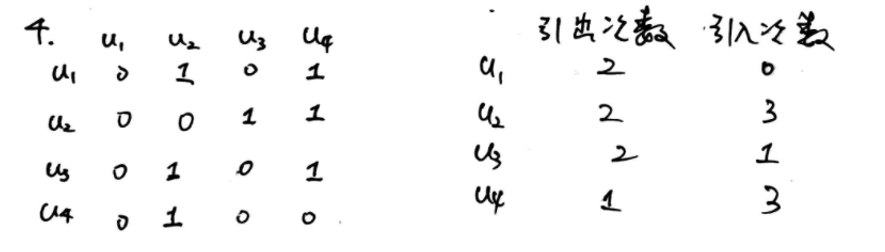 4. u₁ u₂ u₃ u₄
u₁ 0 1 0 1
u₂ 0 0 1 1
u₃ 0 1 0 1
u₄ 0 1 0 0
引出次数 引入次数
u₁ 2 0
u₂ 2 3
u₃ 2 1
u₄ 1 3